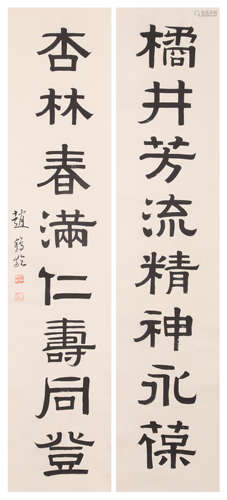 橘井芳流精神永葆
杏林春滿仁壽同登
趙鶴齡